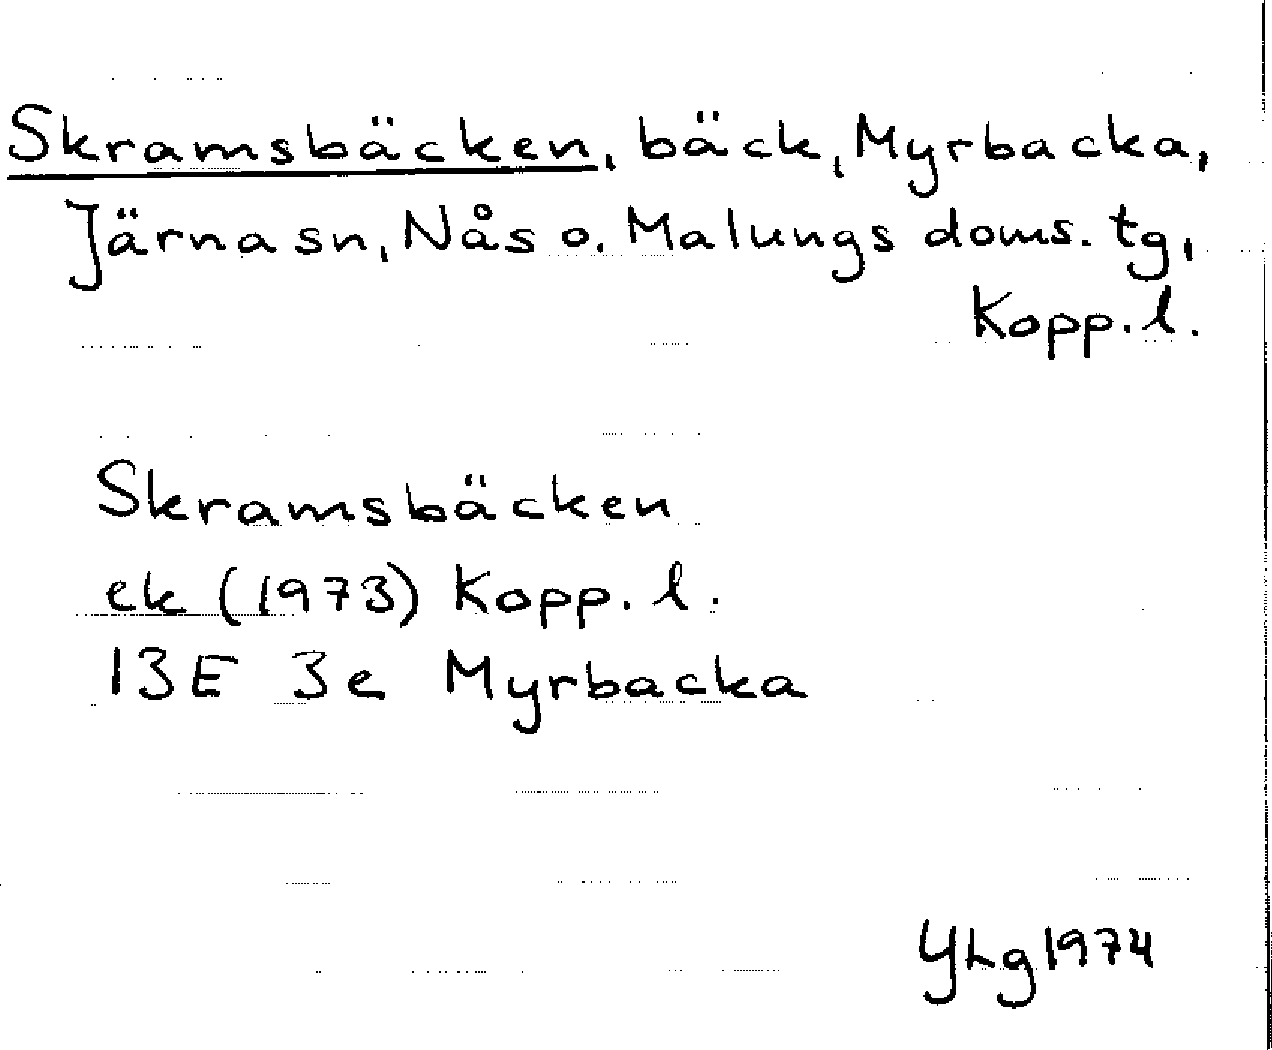 Skramsbäcken, bäck, Myrbacka,
Järnasn, Nås o. Malungs doms. tg,
Kopp. l.
Skramsbäcken
ek (1973) Kopp. l.
13E 3e Myrbacka
YLg 1974